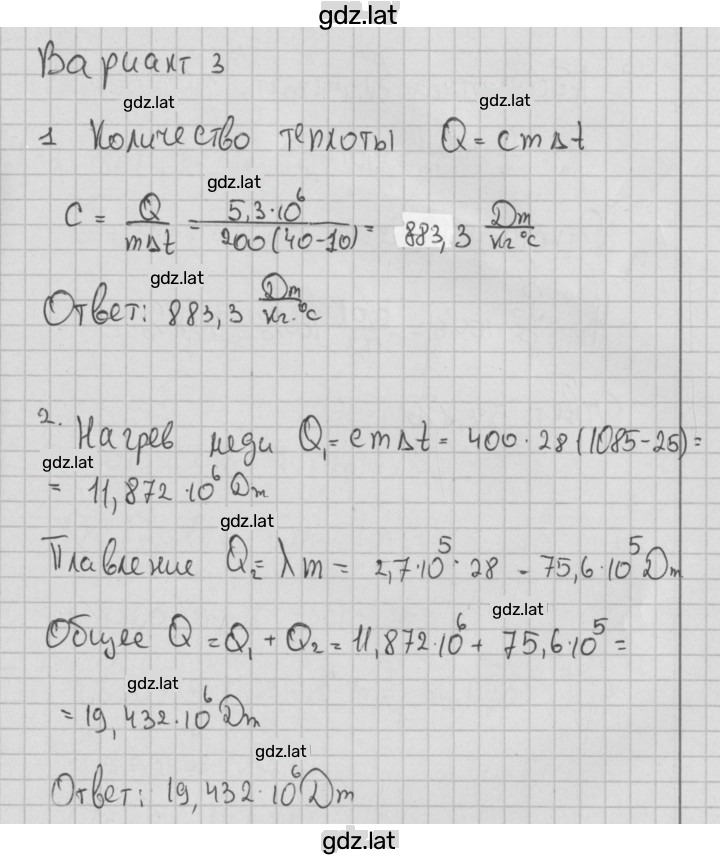 gdz.lat
Вариант 3
gdz.lat gdz.lat
1 Количество теплоты Q = cmΔt
gdz.lat
C = Q/mΔt = 5,3·10⁶/200(40-10) = 883,3 Дж/кг°C
gdz.lat
Ответ: 883,3 Дж/кг·°C
2. Нагрев меди Q₁ = cmΔt = 400·28(1085-25) =
gdz.lat
= 11,872·10⁶ Дж
gdz.lat
Плавление Q₂ = λm = 2,7·10⁵·28 = 75,6·10⁵ Дж
gdz.lat
Общее Q = Q₁ + Q₂ = 11,872·10⁶ + 75,6·10⁵ =
gdz.lat
= 19,432·10⁶ Дж
gdz.lat
Ответ: 19,432·10⁶ Дж
gdz.lat